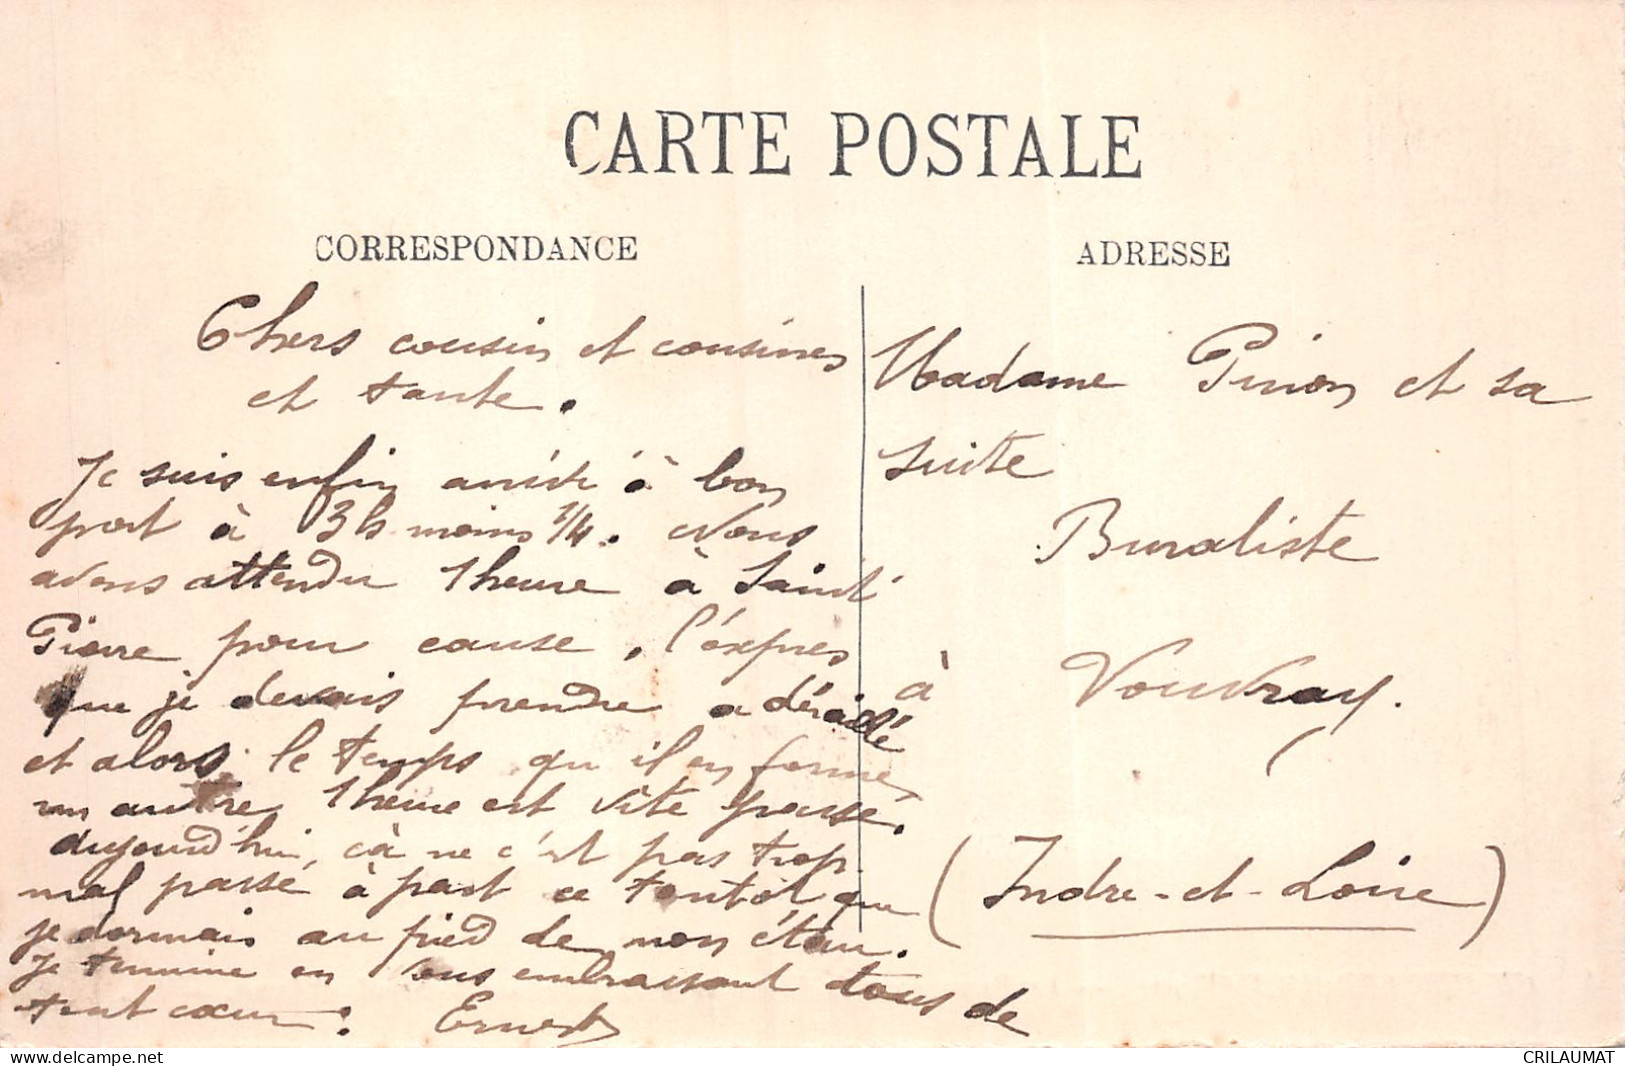 CARTE POSTALE
CORRESPONDANCE
ADRESSE
Chers cousin et cousines
et tante.
Je suis enfin arrivé à bon
port à 3h moins 1/4. Nous
avons attendu 1 heure à Saint
Pierre pour cause, l'expres
que je devais prendre a déraillé
et alors le temps qu'il en forme
un autre 1 heure est vite passé.
aujourd'hui, cà ne c'est pas trop
mal passé à part ce tantôt que
je dormais au pied de mon étau.
Je termine en vous embrassant tous de
tout cœur. Ernest
Madame Pinon et sa
suite
Buraliste
à Vouvray.
(Indre-et-Loire)
delcampe.net
CRILAUMAT